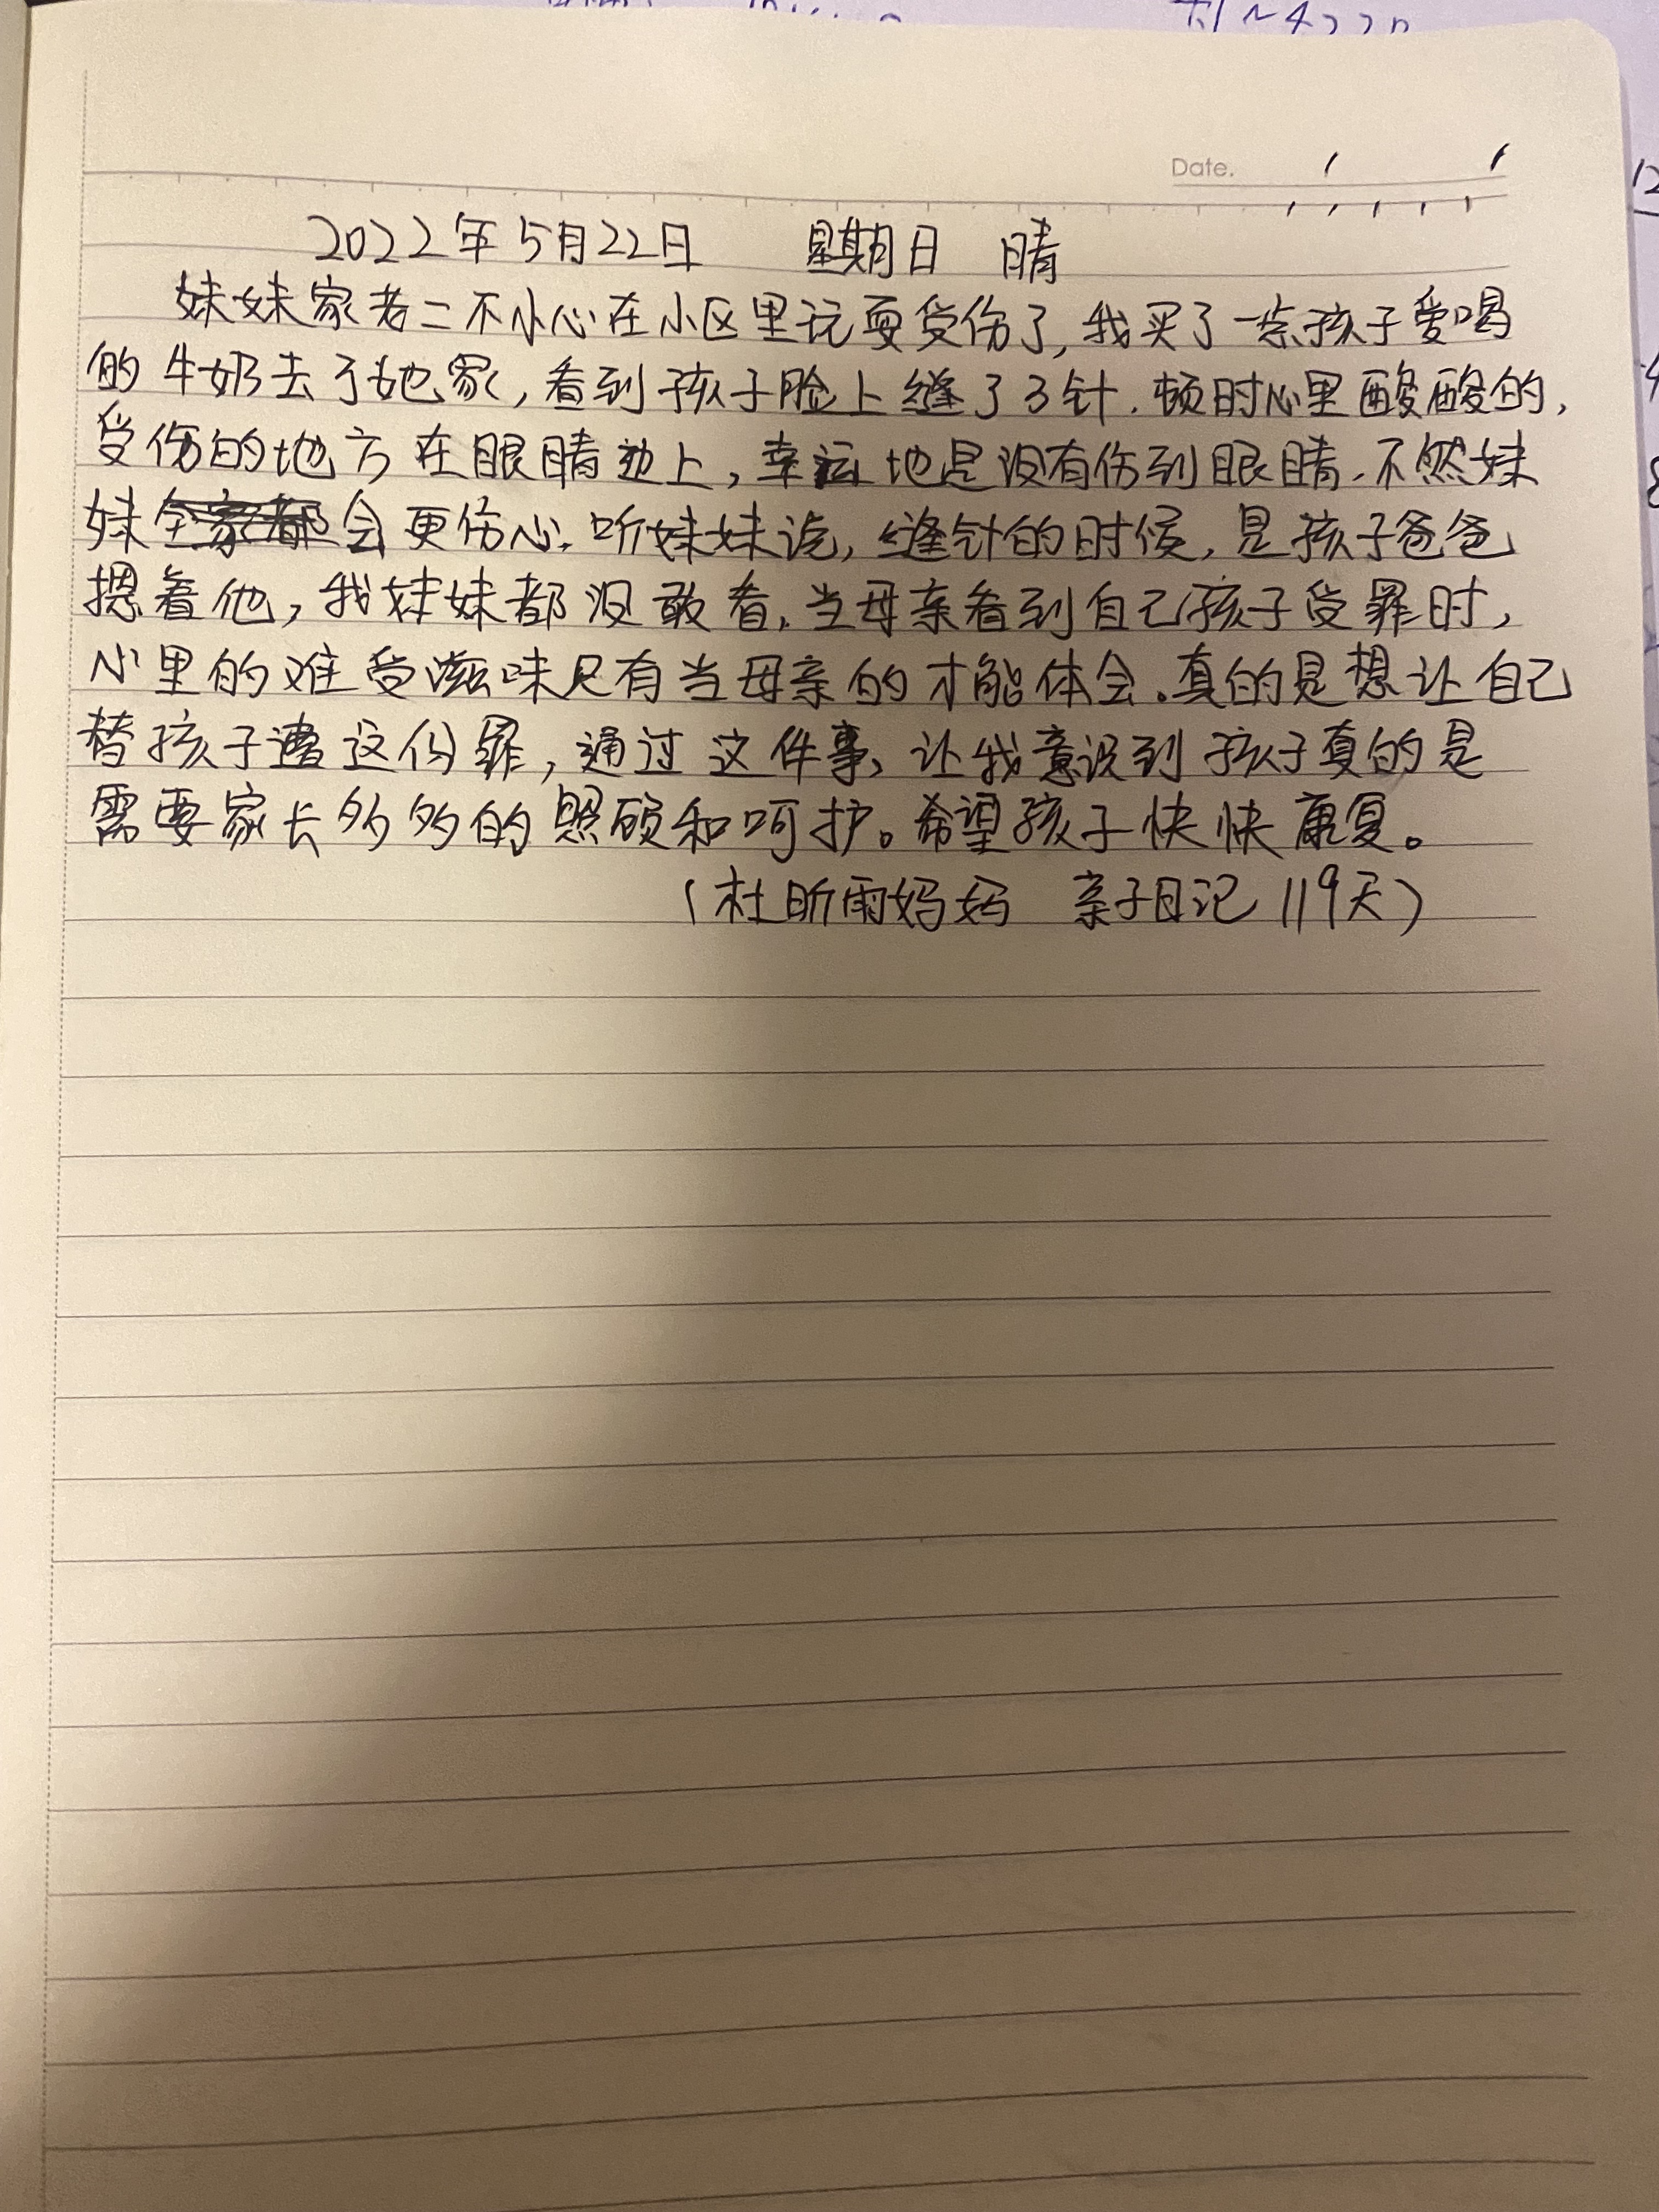 Date.
2022年5月22日 星期日 晴
妹妹家老二不小心在小区里玩耍受伤了,我买了一些孩子爱喝
的牛奶去了她家,看到孩子脸上缝了3针.顿时心里酸酸的,
受伤的地方在眼睛边上,幸运地是没有伤到眼睛.不然妹
妹会更伤心.听妹妹说,缝针的时候,是孩子爸爸
摁着他,我妹妹都没敢看.当母亲看到自己孩子受罪时,
心里的难受滋味只有当母亲的才能体会.真的是想让自己
替孩子遭这份罪,通过这件事、让我意识到孩子真的是
需要家长多多的照顾和呵护。希望孩子快快康复。
(杜昕雨妈妈 亲子日记119天)